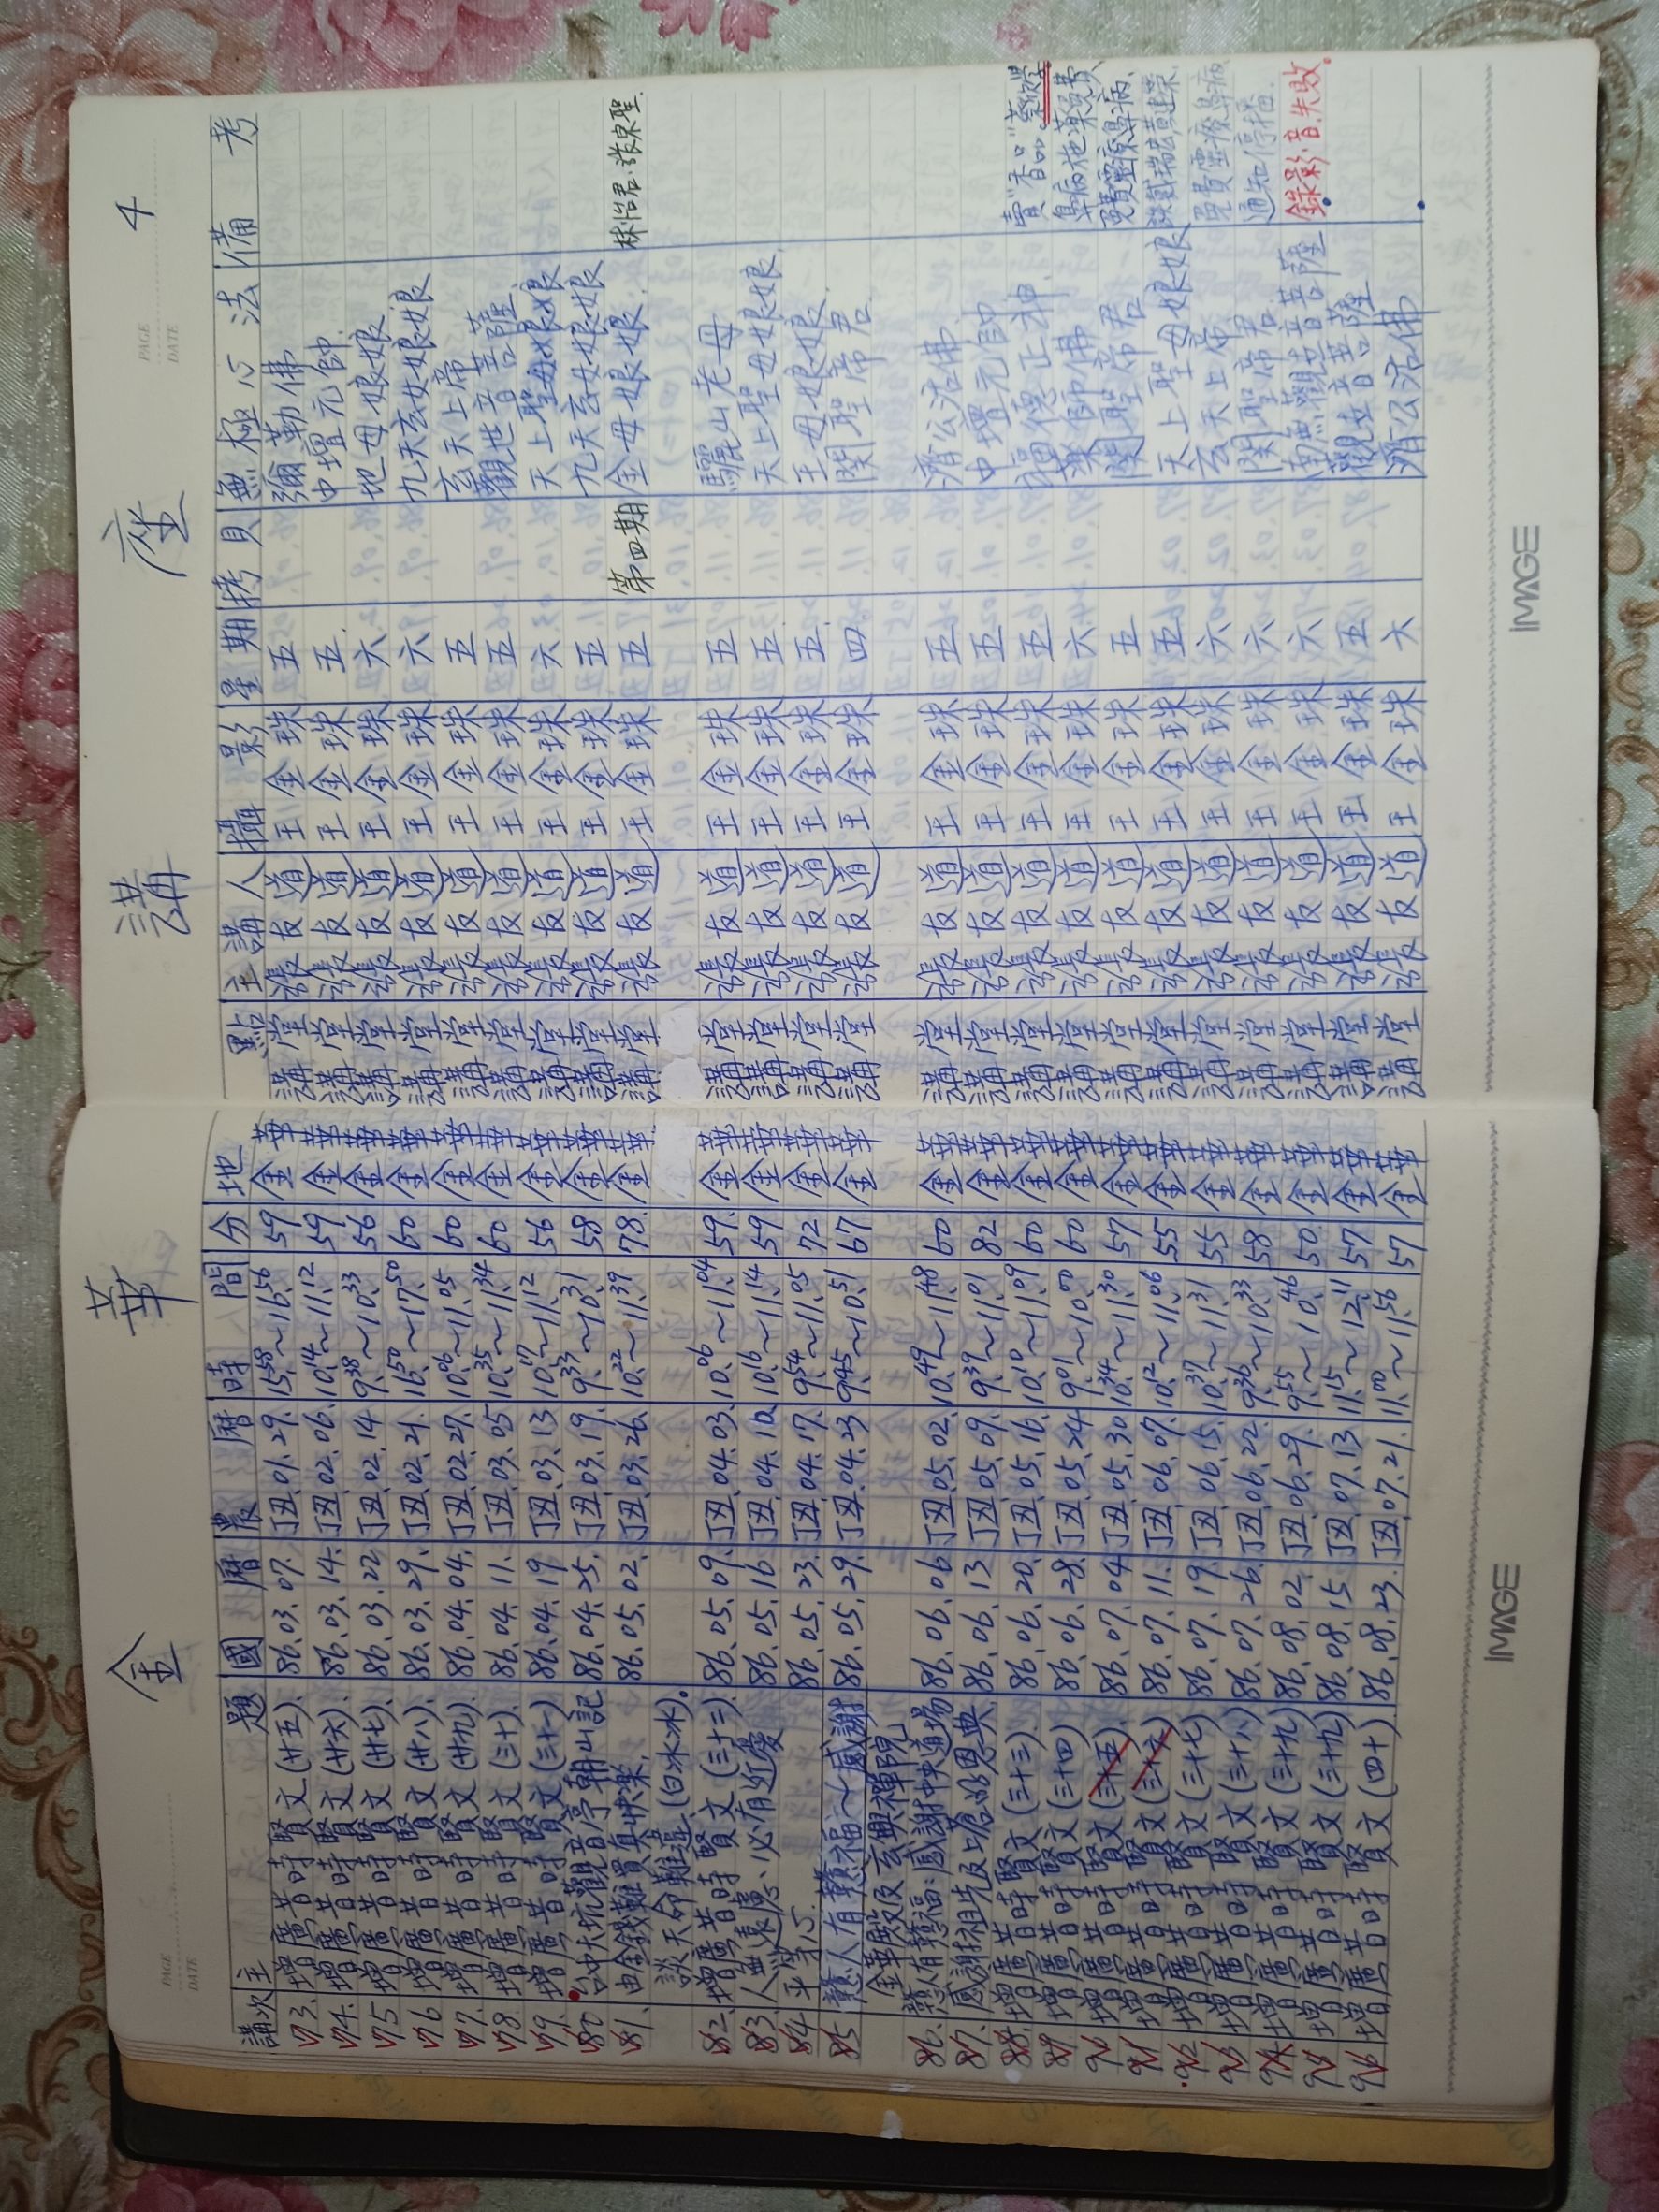 金 華 講 座 4
PAGE
DATE
PAGE
DATE
講次 主題 國曆 農曆 時間 分 地點 主講人 攝影 星期 拷貝 無極心法 備考
73. 增廣昔時賢文(廿五). 86.03.07. 丁丑.01.29. 15:58~16:56 59 金華講堂 王金珠 五 彌勒佛
74. 增廣昔時賢文(廿六). 86.03.14. 丁丑.02.06. 10:14~11:12 59 金華講堂 王金珠 五 中壇元帥
75. 增廣昔時賢文(廿七). 86.03.22 丁丑.02.14 9:38~10:33 56 金華講堂 王金珠 六 地母娘娘
76 增廣昔時賢文(廿八). 86.03.29. 丁丑.02.21. 16:50~17:50 60 金華講堂 王金珠 六 九天玄女娘娘
77. 增廣昔時賢文(廿九). 86.04.04. 丁丑.02.27. 10:06~11:05 60 金華講堂 王金珠 五 玄天上帝
78. 增廣昔時賢文(三十). 86.04.11. 丁丑.03.05 10:35~11:34 60 金華講堂 王金珠 五 觀世音菩薩
79. 增廣昔時賢文(三十一) 86.04.19 丁丑.03.13 10:17~11:12 56 金華講堂 王金珠 六 天上聖母娘娘
80 台中大坑觀音亭朝山記 86.04.25. 丁丑.03.19. 9:33~10:31 58 金華講堂 王金珠 五 九天玄女娘娘
81. 由金錢難買真快樂, 86.05.02. 丁丑.03.26. 10:22~11:39 78. 金華講堂 王金珠 五 第四期 金母娘娘 林怡君.張泉聖.
談天命難違(白冰冰)。
82. 增廣昔時賢文(三十二). 86.05.09. 丁丑.04.03. 10:06~11:04 59. 金華講堂 王金珠 五 驪山老母
83. 人無遠慮、必有近憂 86.05.16 丁丑.04.10. 10:16~11:14 59 金華講堂 王金珠 五 天上聖母娘娘
84. 平等心. 86.05.23. 丁丑.04.17. 9:54~11:05 72 金華講堂 王金珠 五 王母娘娘
85 憨人有憨福~感謝 86.05.29. 丁丑.04.23 9:45~10:51 67 金華講堂 王金珠 四 関聖帝君
金華殿及玄興禪院
86. 憨人有憨福:感謝中央道場 86.06.06 丁丑.05.02. 10:49~11:48 60 金華講堂 王金珠 五 濟公活佛
87. 感謝祖先及上蒼的恩典 86.06.13 丁丑.05.09. 9:39~11:01 82 金華講堂 王金珠 五 中壇元帥
88. 增廣昔時賢文(三十三) 86.06.20. 丁丑.05.16. 10:10~11:09 60 金華講堂 王金珠 五 福德正神 賣"香品"
89 增廣昔時賢文(三十四) 86.06.28. 丁丑.05.24 9:01~10:00 60 金華講堂 王金珠 六 藥師佛
90 增廣昔時賢文(三十五) 86.07.04 丁丑.05.30 10:34~11:30 57 金華講堂 王金珠 五 関聖帝君
91. 增廣昔時賢文(三十六) 86.07.11. 丁丑.06.07. 10:12~11:06 55 金華講堂 王金珠 五 天上聖母娘娘
92 增廣昔時賢文(三十七) 86.07.19. 丁丑.06.15. 10:37~11:31 55 金華講堂 王金珠 六 玄天上帝
93 增廣昔時賢文(三十八) 86.07.26. 丁丑.06.22. 9:36~10:33 58 金華講堂 王金珠 六 関聖帝君 通知停播.
94. 增廣昔時賢文(三十九) 86.08.02. 丁丑.06.29. 9:55~10:46 50. 金華講堂 王金珠 六 南無觀世音菩薩 錄影音失敗。
95 增廣昔時賢文(三十九) 86.08.15 丁丑.07.13 11:15~12:11 57 金華講堂 王金珠 五 觀世音菩薩
96 增廣昔時賢文(四十) 86.08.23. 丁丑.07.21. 11:00~11:56 57 金華講堂 王金珠 六 濟公活佛
IMAGE
IMAGE